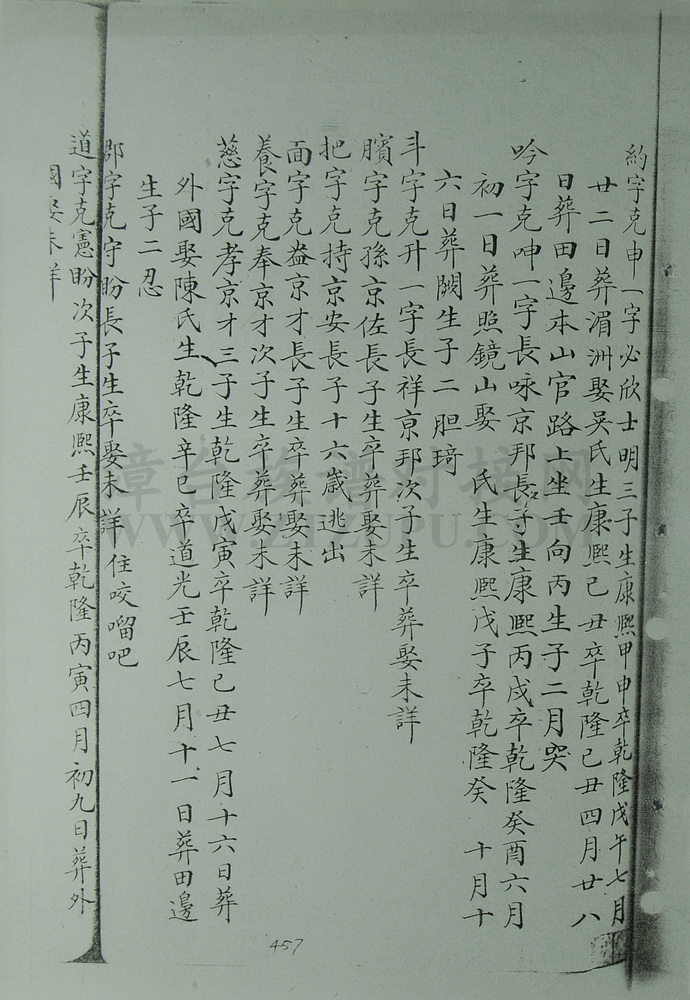 約字克申一字必欣士明三子生康熙甲申卒乾隆戊午七月
廿二日葬湄洲娶吳氏生康熙己丑卒乾隆己丑四月廿八
日葬田邊本山官路上坐壬向丙生子二月突
吟字克呻一字長咏京邦長子生康熙丙戌卒乾隆癸酉六月
初一日葬照鏡山娶 氏生康熙戊子卒乾隆癸 十月十
六日葬闕生子二胆琦
斗字克升一字長祥京邦次子生卒葬娶未詳
臏字克孫京佐長子生卒葬娶未詳
把字克持京安長子十六歲逃出
面字克盎京才長子生卒葬娶未詳
養字克奉京才次子生卒葬娶未詳
慈字克孝京才三子生乾隆戊寅卒乾隆己丑七月十六日葬
外國娶陳氏生乾隆辛巳卒道光壬辰七月十一日葬田邊
生子二忍
字克守盼長子生卒娶未詳住咬𠺕吧
道字克憲盼次子生康熙壬辰卒乾隆丙寅四月初九日葬外
國娶未詳
漳台族譜對接網
WWW.ZTZUPU.COM
457